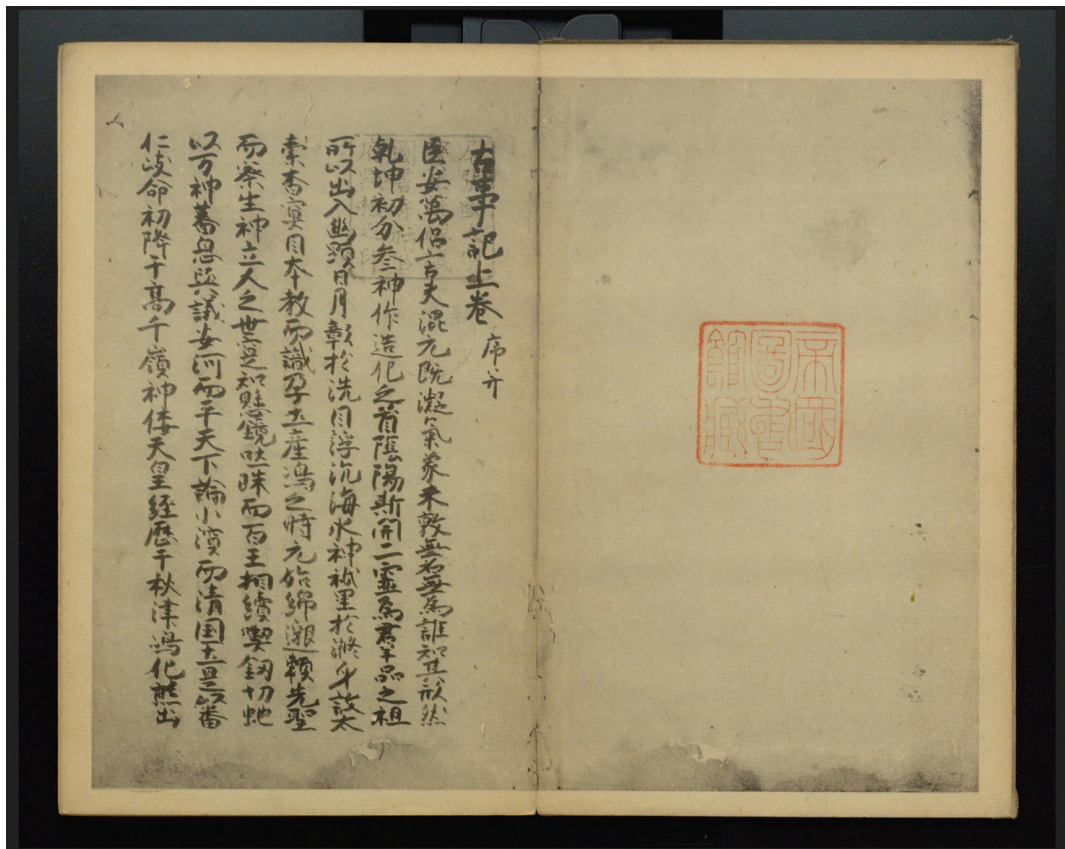 帝國
圖書
館藏
古事記上卷 序并
臣安萬侶言夫混元既凝氣象未敦無名無為誰知其形然
乾坤初分叁神作造化之首陰陽斯開二靈為羣品之祖
所以出入幽顯日月彰於洗目浮沉海水神祇呈於滌身故太
素杳冥目本教而識孕土産嶋之時元始綿邈頼先聖
而察生神立人之世寔知懸鏡吐珠而百王相續喫釼切虵
以万神蕃息與議安河而平天下論小濱而清国土是以番
仁岐命初降于高千嶺神倭天皇経歴于秋津嶋化熊出